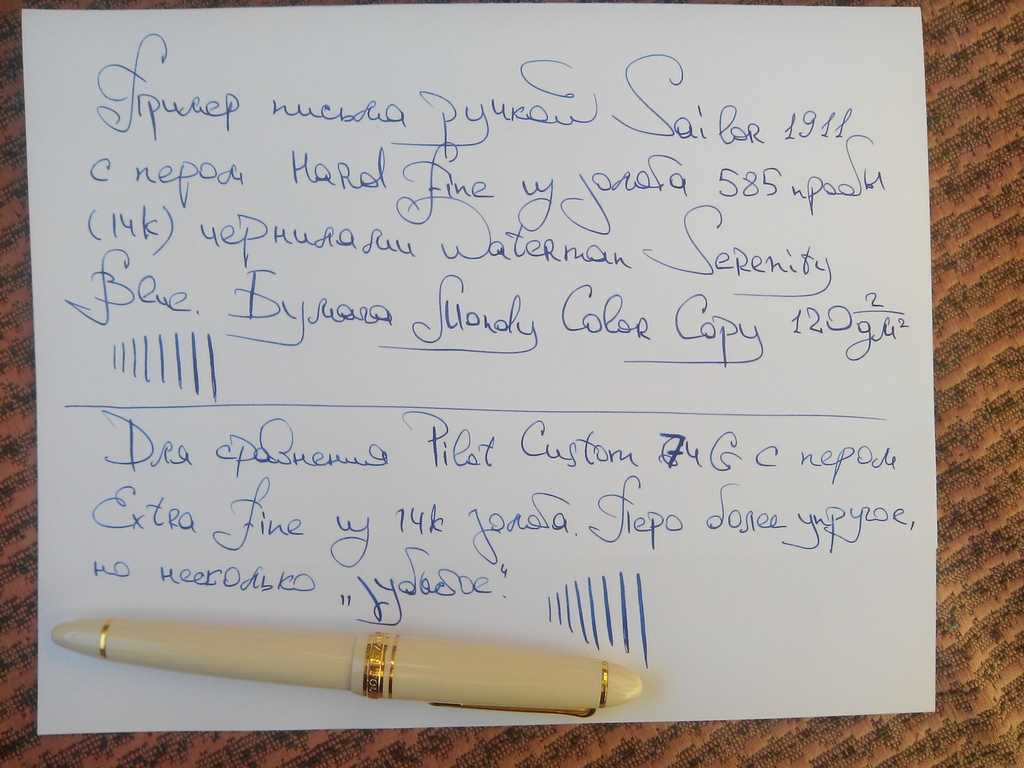 Пример письма ручкой Sailor 1911
с пером Hard Fine из золота 585 пробы
(14k) чернилами Waterman Serenity
Blue. Бумага Mondy Color Copy 120 г/дм²
Для сравнения Pilot Custom 74 G с пером
Extra Fine из 14k золота. Перо более упругое,
но несколько „зубастое“.